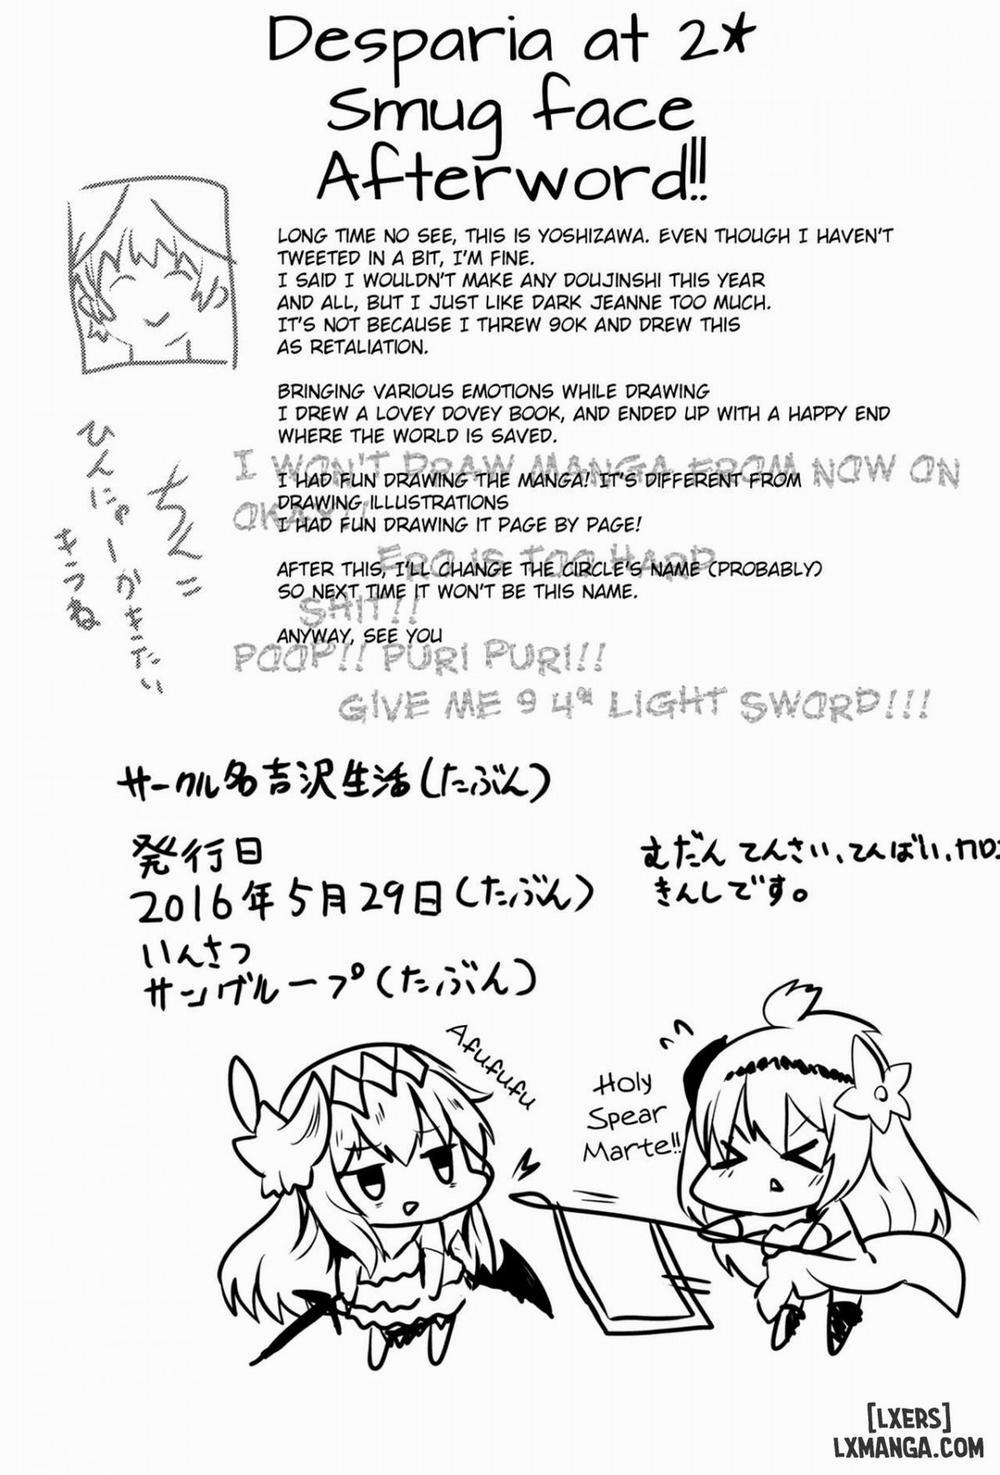 Desparia at 2★
Smug face
Afterword!!
LONG TIME NO SEE, THIS IS YOSHIZAWA. EVEN THOUGH I HAVEN'T
TWEETED IN A BIT, I'M FINE.
I SAID I WOULDN'T MAKE ANY DOUJINSHI THIS YEAR
AND ALL, BUT I JUST LIKE DARK JEANNE TOO MUCH.
IT'S NOT BECAUSE I THREW 90K AND DREW THIS
AS RETALIATION.
BRINGING VARIOUS EMOTIONS WHILE DRAWING
I DREW A LOVEY DOVEY BOOK, AND ENDED UP WITH A HAPPY END
WHERE THE WORLD IS SAVED.
I WON'T DRAW MANGA FROM NOW ON
I HAD FUN DRAWING THE MANGA! IT'S DIFFERENT FROM
DRAWING ILLUSTRATIONS
OKAY!!
I HAD FUN DRAWING IT PAGE BY PAGE!
ERO IS TOO HARD
AFTER THIS, I'LL CHANGE THE CIRCLE'S NAME (PROBABLY)
SO NEXT TIME IT WON'T BE THIS NAME.
SHIT!!
ANYWAY, SEE YOU
POOP!! PURI PURI!!
GIVE ME 9 4* LIGHT SWORD!!!
ちんこ
ひんにゅーかきたい
きつね
サークル名吉沢生活(たぶん)
発行日
2016年5月29日(たぶん)
いんさつ
サングループ(たぶん)
むだんてんさい、てんばい、
きんしです。
Afufufu
Holy
Spear
Marte!!
[LXERS]
LXMANGA.COM